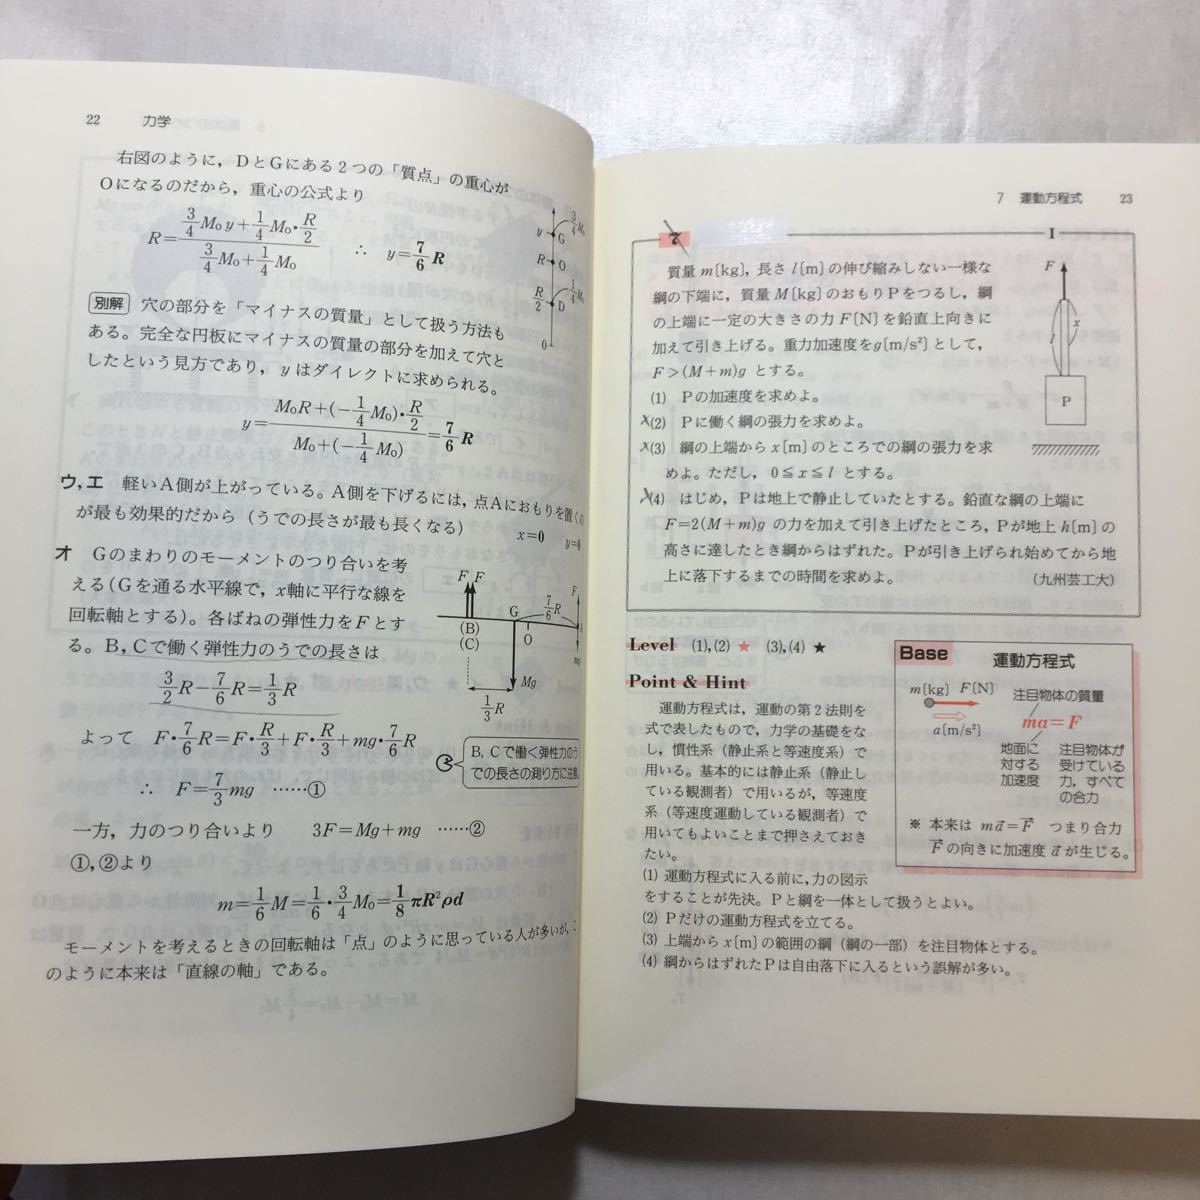 22 力学
右図のように，DとGにある2つの「質点」の重心が
Oになるのだから，重心の公式より
R=(3/4 M₀y+1/4 M₀・R/2)/(3/4 M₀+1/4 M₀) ∴ y=7/6 R
別解 穴の部分を「マイナスの質量」として扱う方法も
ある。完全な円板にマイナスの質量の部分を加えて穴と
したという見方であり，yはダイレクトに求められる。
y=(M₀R+(-1/4 M₀)・R/2)/(M₀+(-1/4 M₀))=7/6 R
y
3/4 M₀
G
R
O
R/2
1/4 M₀
D
0
ウ，エ 軽いA側が上がっている。A側を下げるには，点Aにおもりを置くの
が最も効果的だから（うでの長さが最も長くなる） x=0 y=0
オ Gのまわりのモーメントのつり合いを考
える（Gを通る水平線で，x軸に平行な線を
回転軸とする）。各ばねの弾性力をFとす
る。B，Cで働く弾性力のうでの長さは
3/2 R-7/6 R=1/3 R
よって F・7/6 R=F・R/3+F・R/3+mg・7/6 R
∴ F=7/3 mg ……①
F F
G
7/6 R
(B)
(C)
O
A
mg
Mg
1/3 R
B，Cで働く弾性力のう
での長さの測り方に注意。
一方，力のつり合いより 3F=Mg+mg ……②
①，②より
m=1/6 M=1/6・3/4 M₀=1/8 πR²ρd
モーメントを考えるときの回転軸は「点」のように思っている人が多いが，こ
のように本来は「直線の軸」である。
7 運動方程式 23
7
質量m〔kg〕，長さl〔m〕の伸び縮みしない一様な
綱の下端に，質量M〔kg〕のおもりPをつるし，綱
の上端に一定の大きさの力F〔N〕を鉛直上向きに
加えて引き上げる。重力加速度をg〔m/s²〕として，
F>(M+m)gとする。
(1) Pの加速度を求めよ。
(2) Pに働く綱の張力を求めよ。
(3) 綱の上端からx〔m〕のところでの綱の張力を求
めよ。ただし，0≦x≦lとする。
(4) はじめ，Pは地上で静止していたとする。鉛直な綱の上端に
F=2(M+m)gの力を加えて引き上げたところ，Pが地上h〔m〕の
高さに達したとき綱からはずれた。Pが引き上げられ始めてから地
上に落下するまでの時間を求めよ。 （九州芸工大）
I
F
x
l
P
Level (1)，(2) ★ (3)，(4) ★
Point & Hint
運動方程式は，運動の第2法則を
式で表したもので，力学の基礎をな
し，慣性系（静止系と等速度系）で
用いる。基本的には静止系（静止し
ている観測者）で用いるが，等速度
系（等速度運動している観測者）で
用いてもよいことまで押さえておき
たい。
(1) 運動方程式に入る前に，力の図示
をすることが先決。Pと綱を一体として扱うとよい。
(2) Pだけの運動方程式を立てる。
(3) 上端からx〔m〕の範囲の綱（綱の一部）を注目物体とする。
(4) 綱からはずれたPは自由落下に入るという誤解が多い。
Base 運動方程式
m〔kg〕 F〔N〕
a〔m/s²〕
注目物体の質量
ma=F
地面に
対する
加速度
注目物体が
受けている
力，すべて
の合力
※ 本来は ma⃗=F⃗ つまり合力
F⃗の向きに加速度a⃗が生じる。